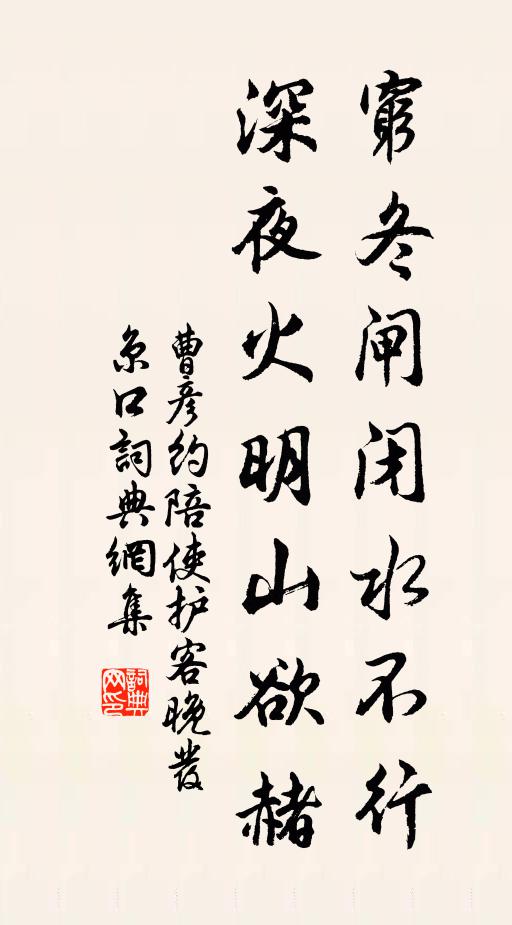 窮冬闸闭水不行
深夜火明山欲赭
曹彦约陪使护客晚發
京口詞典網集
詞典
网印